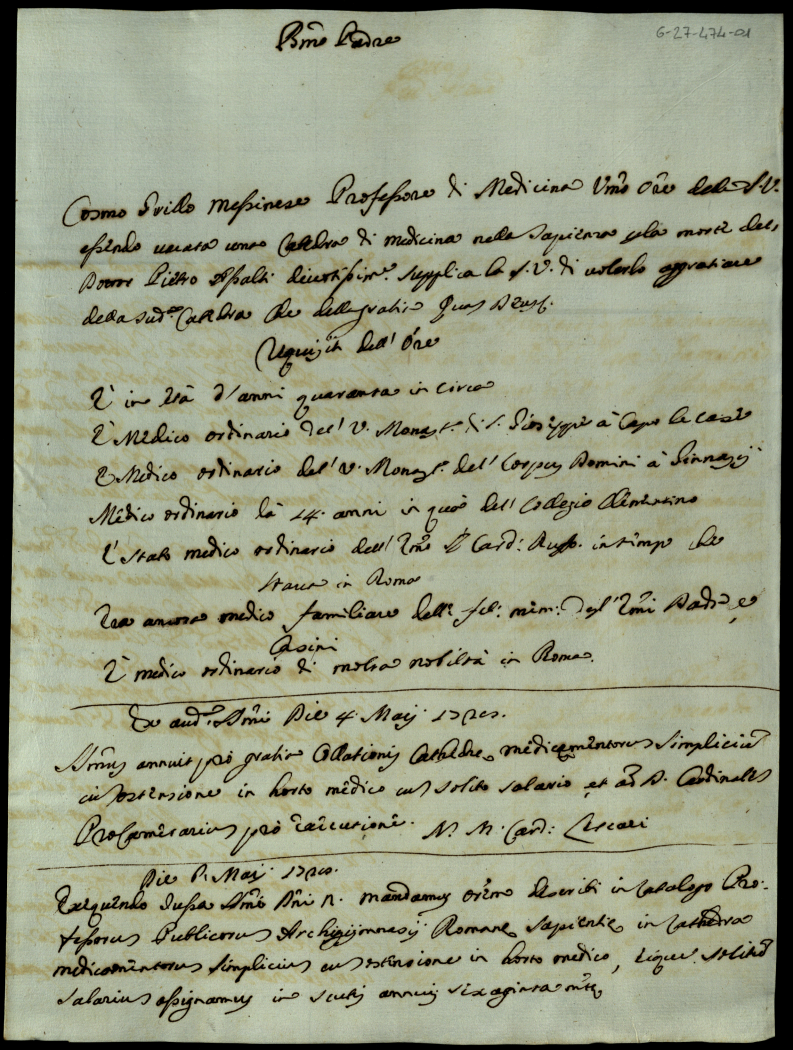 6-27-474-01
Bmo Padre
Cosmo Grillo Messinese Professore di Medicina Umo Ore della S.V.
essendo vacata una Cattedra di medicina nella Sapienza p la morte del
Dottor Pietro Assalti devotissime. supplica la S.V. di volerlo aggratiare
della sudª Cattedra che della gratia Quas Deus.
Requisiti dell' Ore
È in Età d'anni quaranta in circa
È Medico ordinario del V. Monastº di S. Gioseppe à Capo le case
È Medico ordinario del V. Monastº. del Corpus Domini à Ginnasij
Medico ordinario da 14. anni in quà del Collegio Clementino
È stato medico ordinario dell' Emo Sr Card: Ruffo. in tempo che
stava in Roma
Era ancora medico familiare della fel: mem: degl' Emi Badia e
Casini
È medico ordinario di molta nobiltà in Roma.
Ex audª. Ssmi Die 4. Maij
Ssmus annuit prò gratia Collationis Cathedre medicamentorum simplicium
cum ostensione in horto medico cum solito salario et ad D. Cardinalem
ProCamerarium prò executione. Card:
Die Maij
Exequendo Jussa Ssmi Dni N. mandamus Orem describi in Catalogo Pro-
fessorum Publicorum Archigijmnasij Romane Sapientie in Cathedra
medicamentorum simplicium cum ostensione in horto medico, eique solitum
salarium assignamus in scutis annuis sexaginta mte